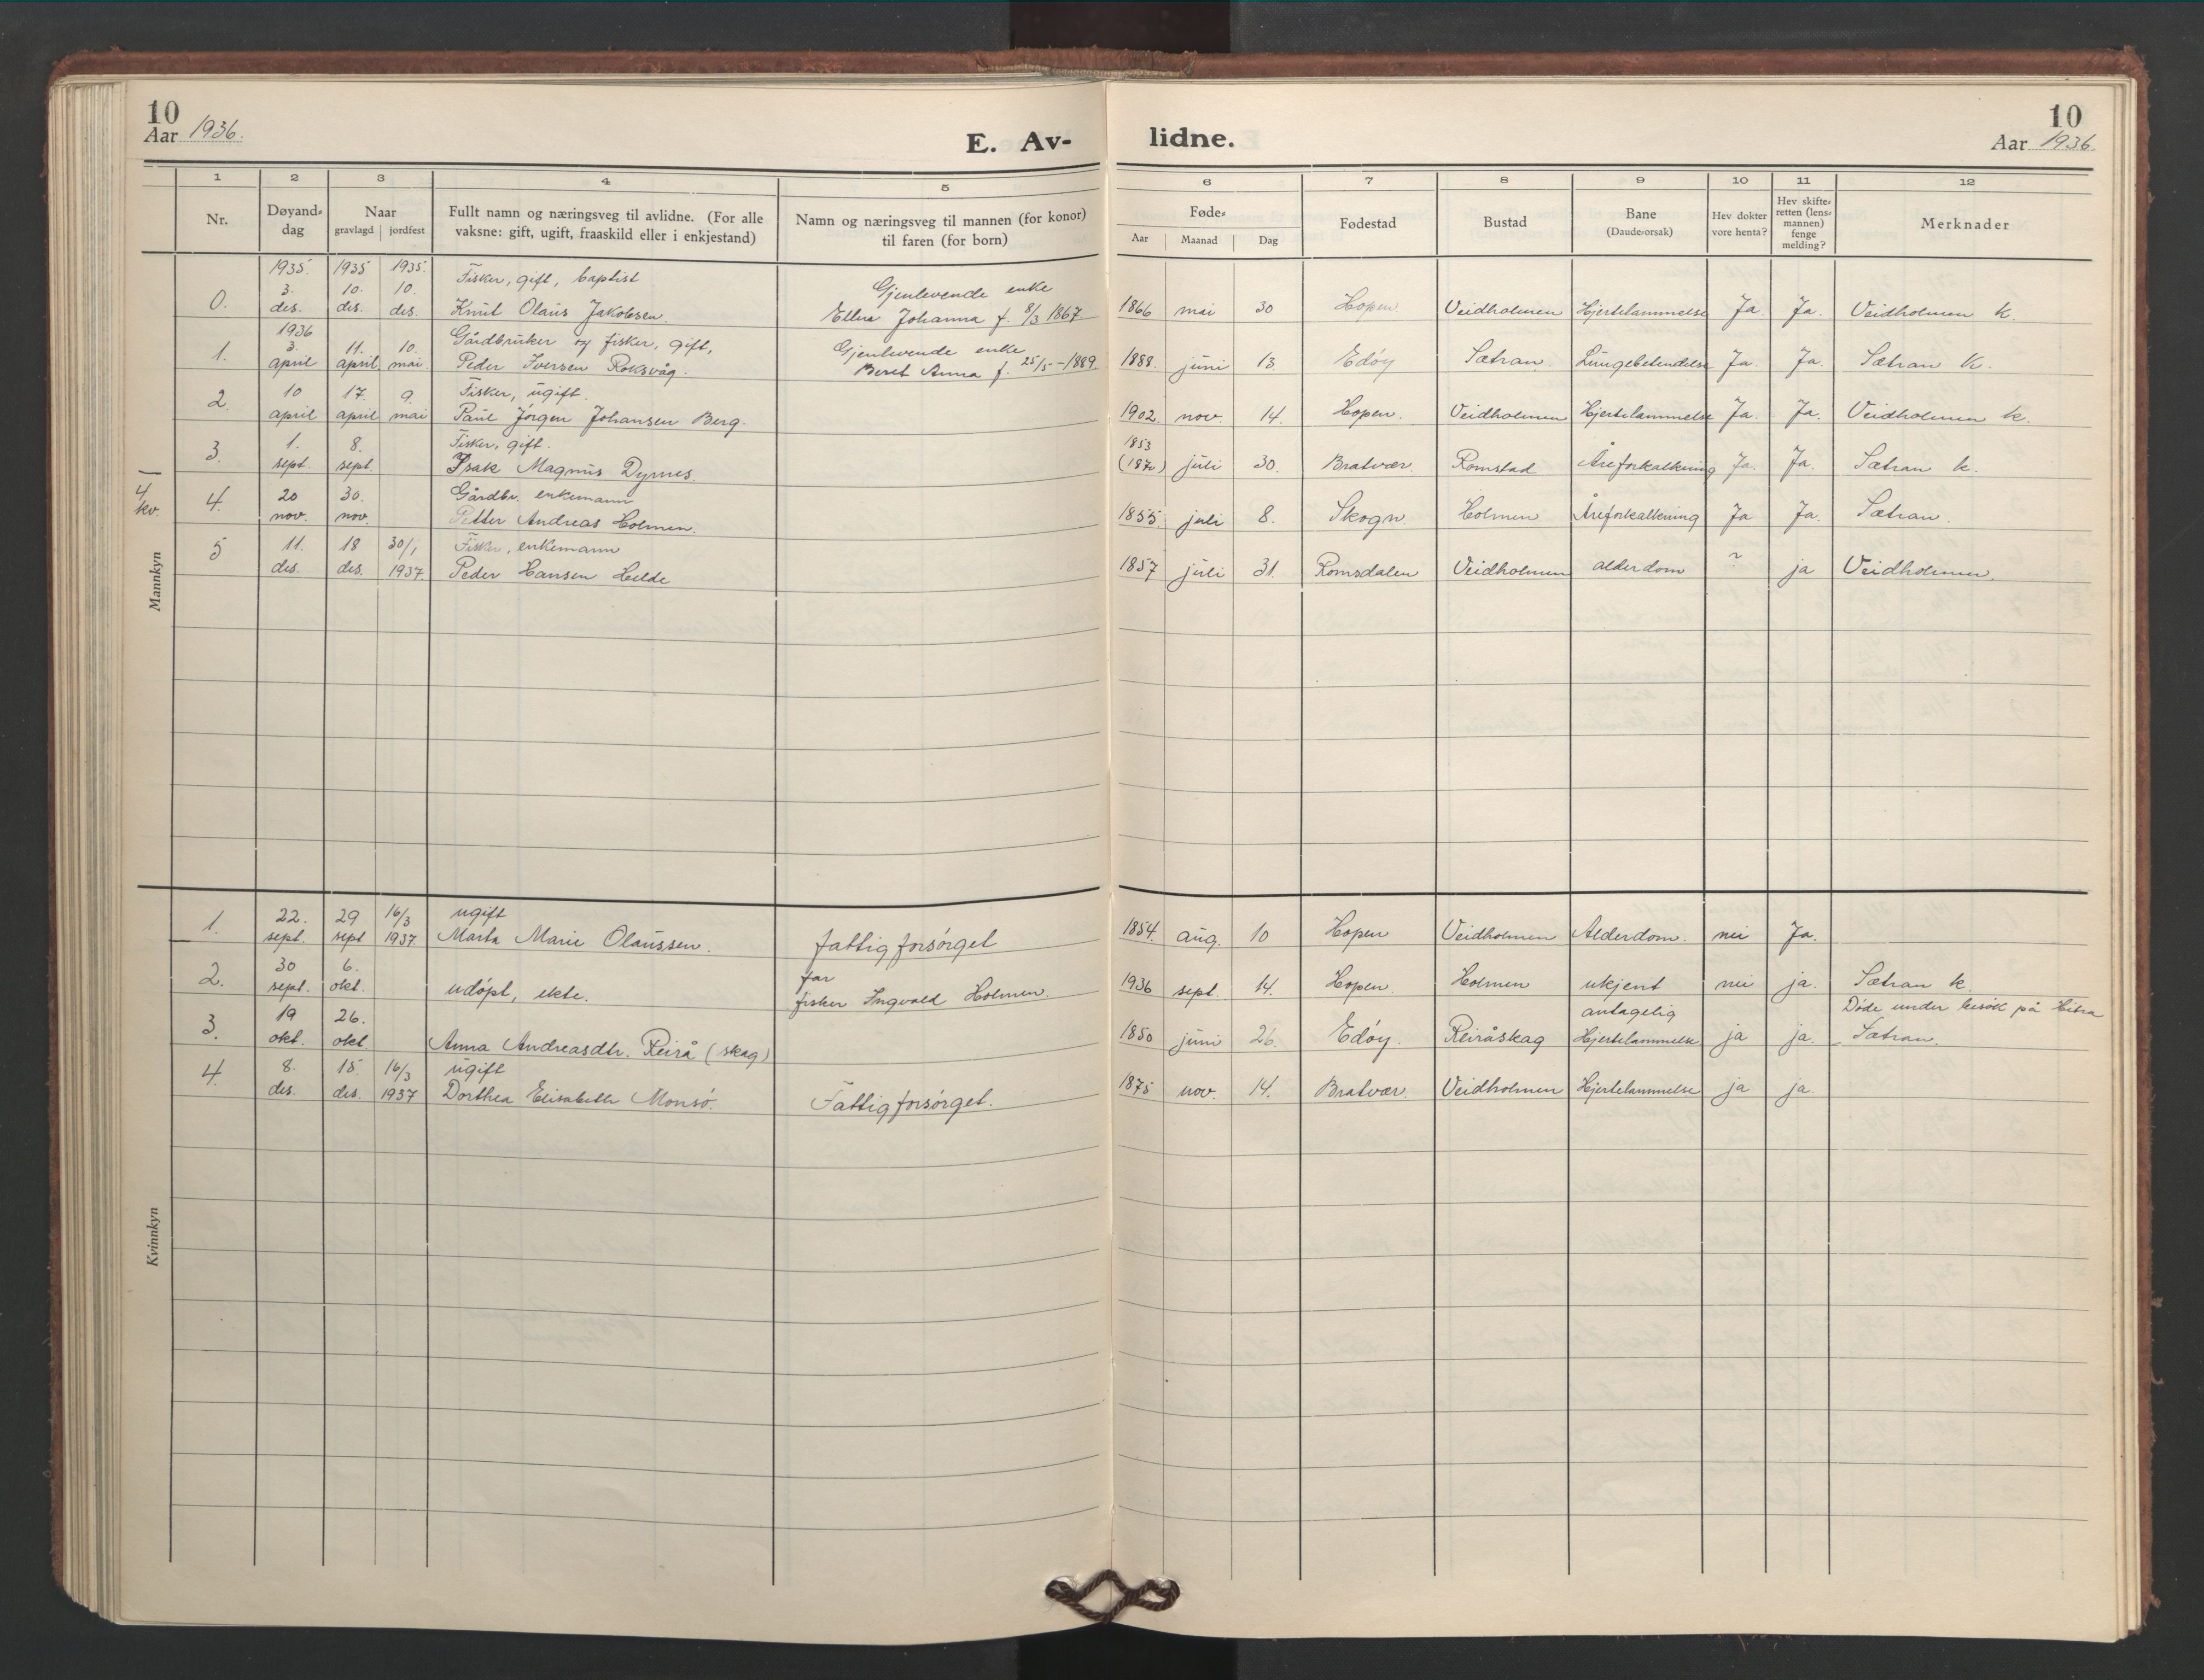 10
Aar 1936.
E. Av-
lidne.
10
Aar 1936.
1 2 3 4 5 6 7 8 9 10 11 12
Nr.
Døyand-
dag
Naar
gravlagd jordfest
Fullt namn og næringsveg til avlidne. (For alle
vaksne: gift, ugift, fraaskild eller i enkjestand)
Namn og næringsveg til mannen (for konor)
til faren (for born)
Føde-
Aar Maanad Dag
Fødestad
Bustad
Bane
(Daude-orsak)
Hev dokter
vore henta?
Hev skifte-
retten (lens-
mannen)
fenge
melding?
Merknader
Mannkyn
4
kv.
1935. 1935 1935. Fisker, gift, baptist Gjenlevende enke
0. 3. des. 10. des. 10. des. Knut Olaus Jakobsen. Johanna f. 8/3 1867 1866 mai 30 Hopen Veidholmen Hjertelammelse Ja. Ja. Veidholmen k.
1936 Gårdbruker og fisker, gift, Gjenlevende enke
1. 3. april 11. april 10. mai. Peder Iversen Roksvåg. Beret Anna f. 25/5-1889. 1888. juni 13. Edöy Sætran. Lungebetendelse Ja. Ja. Sætran k.
Fisker, ugift.
2. 10 april 17. april 9. mai Paul Jörgen Johansen Berg. 1902. nov. 14. Hopen. Veidholmen Hjertelammelse Ja. Ja. Veidholmen k.
Fisker, gift. 1853
3. 1. sept. 8. sept. Isak Magnus Dyrnes. (187) juli 30. Bratvær. Romstad Åreforkalkning Ja. Ja. Sætran k.
Gårdbr. enkemann
4. 20 nov. 30. nov. Petter Andreas Holmen. 1855. juli 8. Skogn Holmen Åreforkalkning Ja Ja. Sætran.
Fisker, enkemann
5 11. des. 18 des. 30/1 1937. Peder Hansen Helde 1857 juli 31. Romsdalen Veidholmen alderdom ? ja Veidholmen.
Kvinnkyn
ugift
1. 22. sept. 29 sept 16/3 1937. Marta Marie Olaussen. fattigforsörget 1854. aug. 10 Hopen Veidholmen Alderdom. nei Ja.
far
2. 30 sept. 6. okt. udöpt, ekte. fisker Ingvald Holmen. 1936 sept. 14. Hopen. Holmen ukjent nei ja. Sætran k.
antagelig Döde under besök på Hitra
3. 19 okt. 26. okt. Anna Andreasdtr. Reirå (skag) 1850 juni 26. Edöy. Reiråskag Hjertelammelse ja ja. Sætran.
ugift
4. 8. des. 15. des. 16/3 1937 Dorthea Elisabeth Monsö. Fattigforsörget. 1875 nov. 14. Bratvær. Veidholmen Hjertelammelse ja ja.